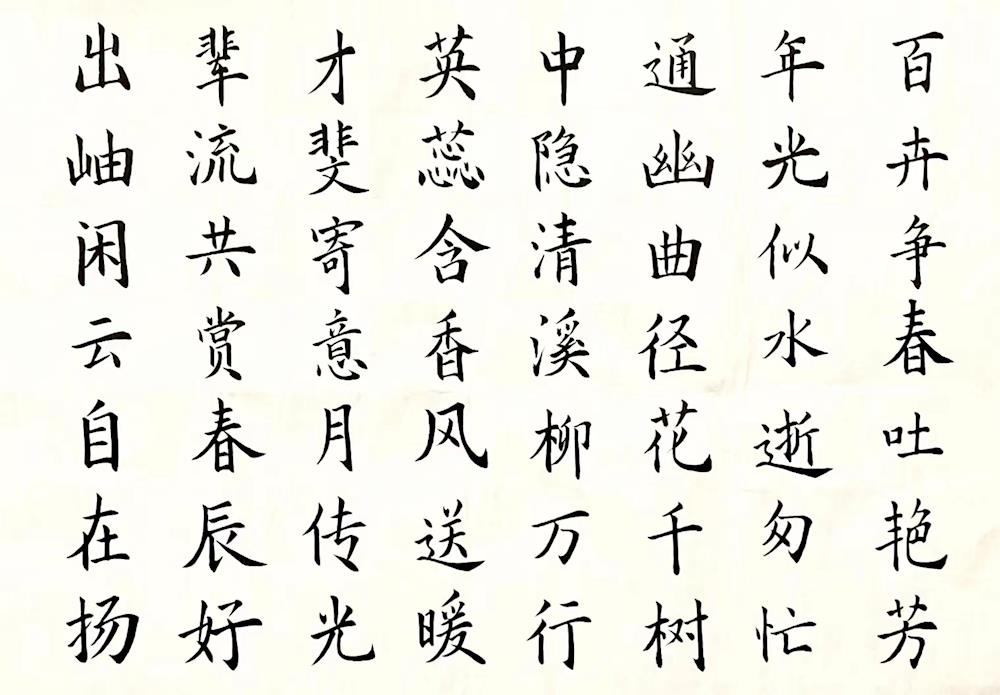 百卉争春吐艳芳
年光似水逝匆忙
通幽曲径花千树
中隐清溪柳万行
英蕊含香风送暖
才斐寄意月传光
辈流共赏春辰好
出岫闲云自在扬